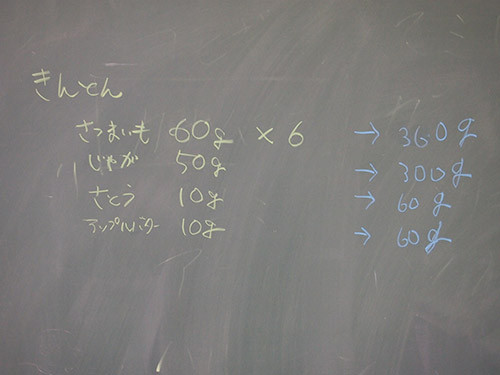 きんとん
さつまいも 60g × 6 → 360g
じゃが 50g → 300g
さとう 10g → 60g
アップルバター 10g → 60g